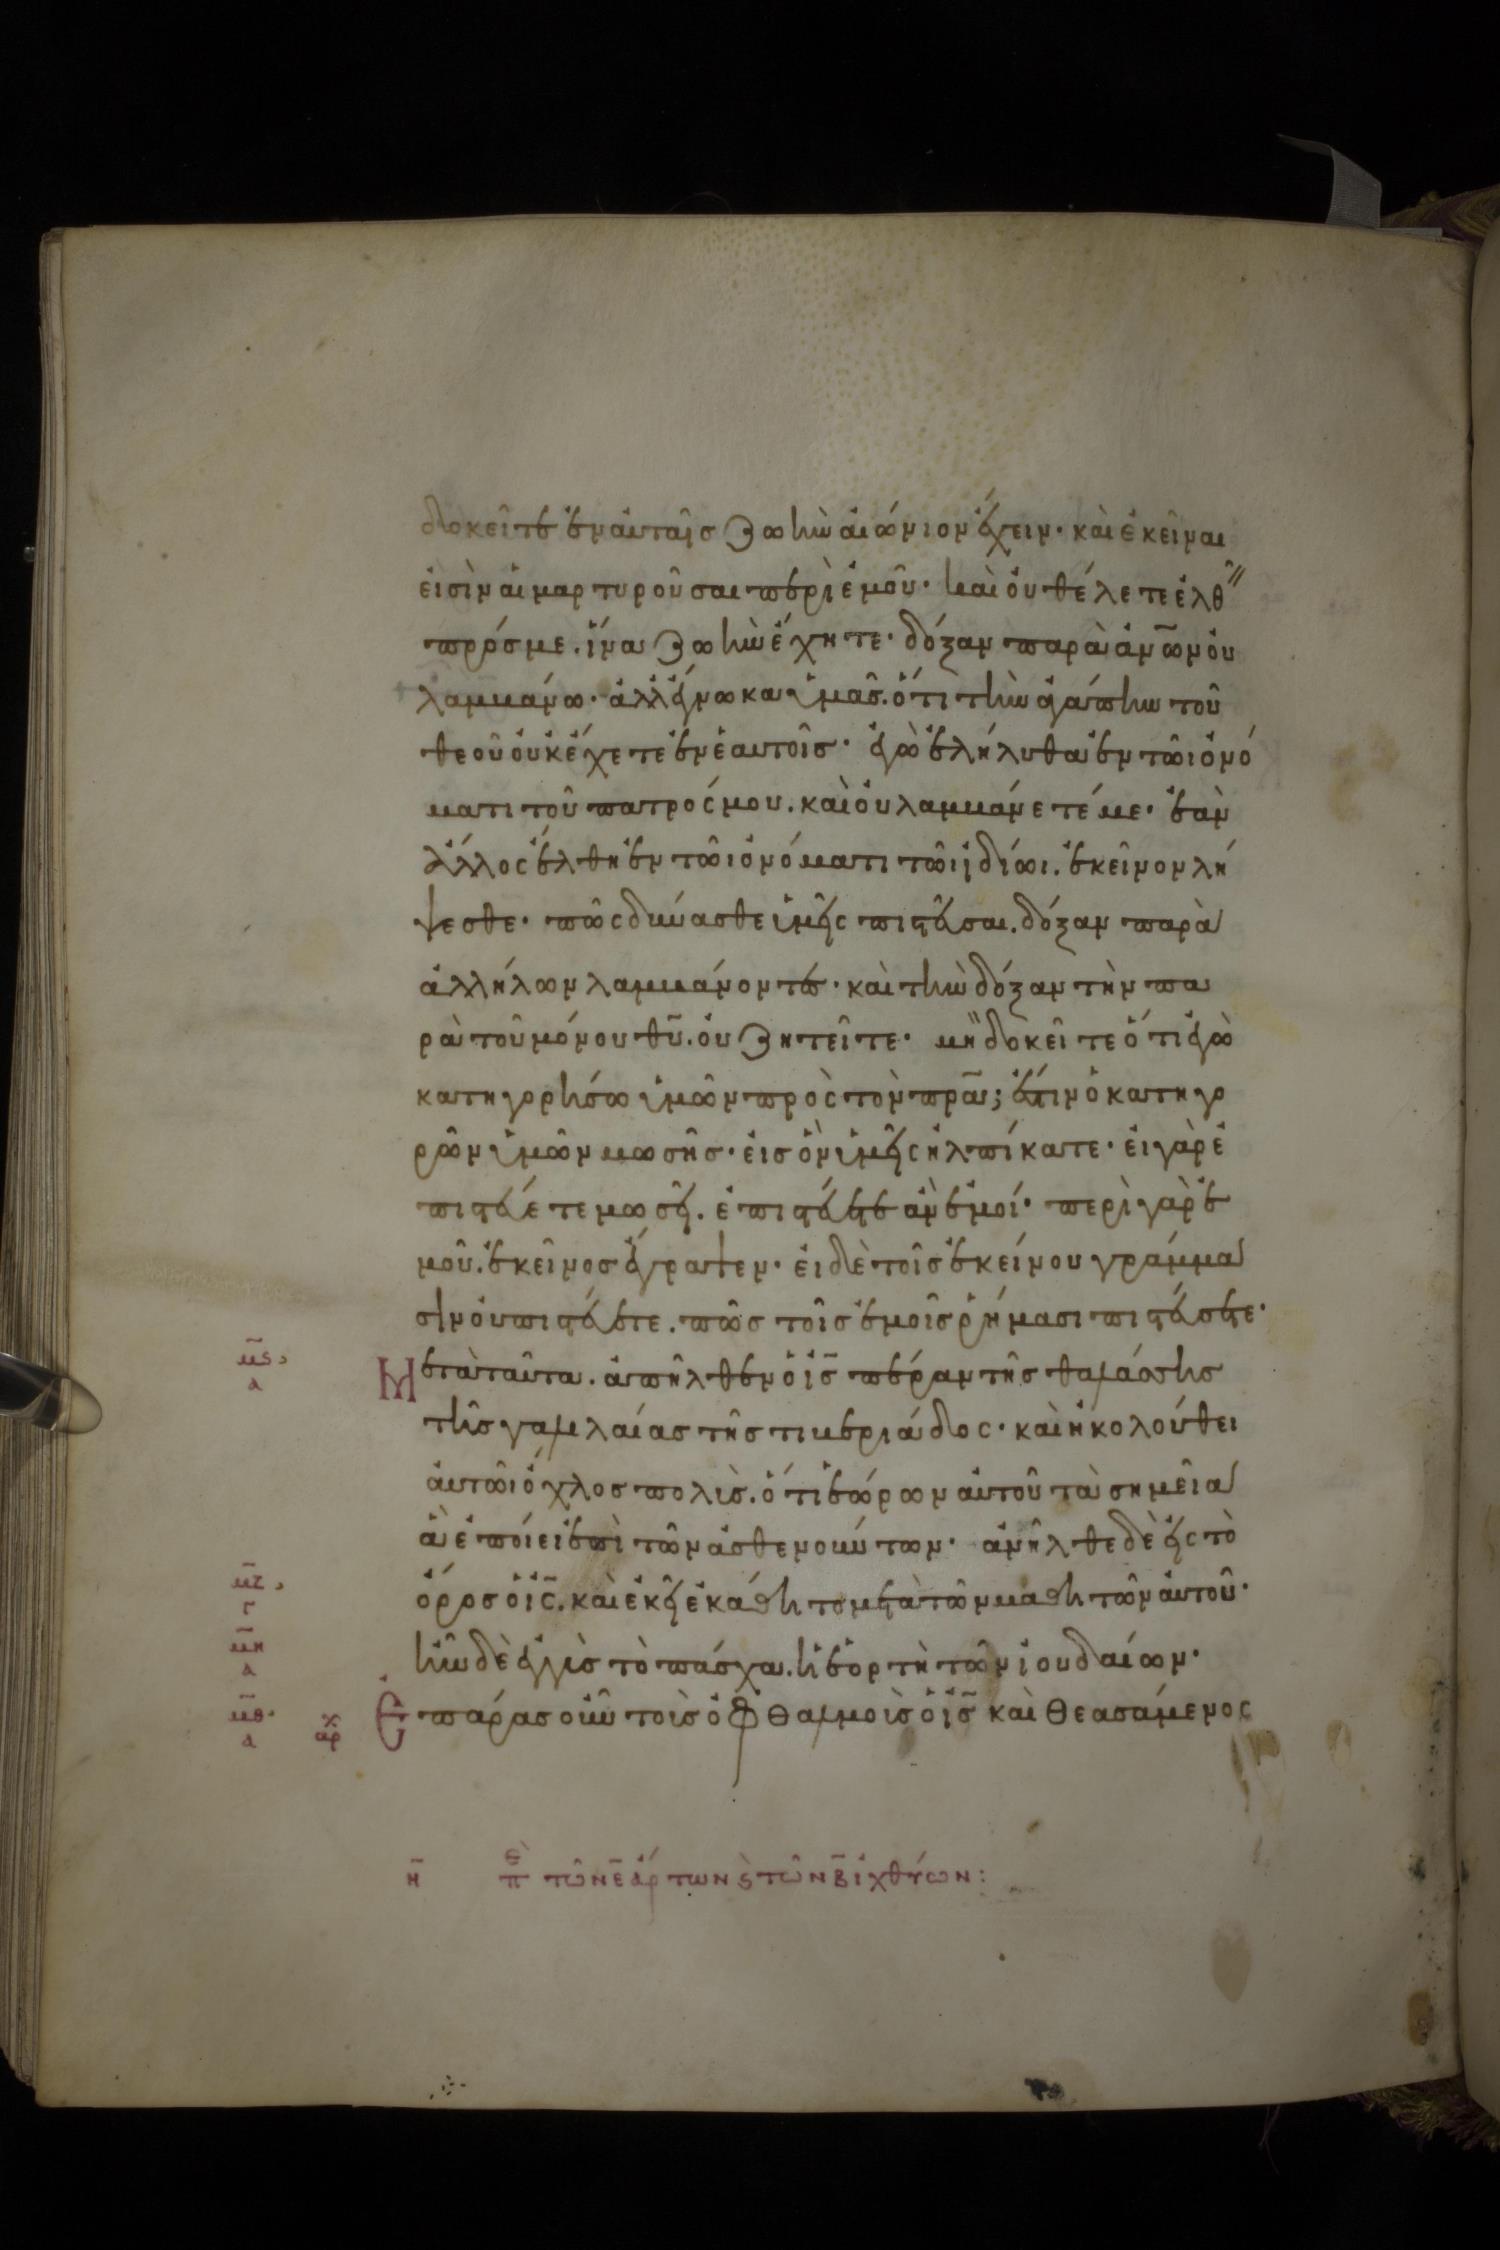 δοκεῖτε ἐν αὐταῖς ζωὴν αἰώνιον ἔχειν· καὶ ἐκεῖναι
εἰσὶν αἱ μαρτυροῦσαι περὶ ἐμοῦ· καὶ οὐ θέλετε ἐλθ
πρός με. ἵνα ζωὴν ἔχητε· δόξαν παρὰ ἀν̅ων οὐ
λαμβάνω· ἀλλ' ἔγνωκα ὑμᾶς. ὅτι τὴν ἀγάπην τοῦ
θεοῦ οὐκ ἔχετε ἐν ἑαυτοῖς· ἐγὼ ἐλήλυθα ἐν τῶι ὀνό
ματι τοῦ πατρός μου. καὶ οὐ λαμβάνετέ με· ἐὰν
ἄλλος ἔλθη ἐν τῶι ὀνόματι τῶι ἰδίωι. ἐκεῖνον λή
ψεσθε· πῶς δύνασθε ὑμεῖς πιστεῦσαι. δόξαν παρὰ
ἀλλήλων λαμβάνοντες· καὶ τὴν δόξαν τὴν πα
ρὰ τοῦ μόνου θυ̅. οὐ ζητεῖτε· μὴ δοκεῖτε ὅτι ἐγὼ
κατηγορήσω ὑμῶν πρὸς τὸν πρ̅α; ἔστιν ὁ κατηγο
ρῶν ὑμῶν μωσῆς· εἰς ὃν ὑμεῖς ἠλπίκατε· εἰ γὰρ ἐ
πιστεύετε μωσεῖ. ἐπιστεύετε ἂν ἐμοί· περὶ γὰρ ἐ
μοῦ. ἐκεῖνος ἔγραψεν· εἰ δὲ τοῖς ἐκείνου γράμμα
σιν οὐ πιστεύετε. πῶς τοῖς ἐμοῖς ῥήμασι πιστεύσετε·
μ̅ς
α
Μετὰ ταῦτα. ἀπῆλθεν ὁ ἰς̅ πέραν τῆς θαλάσσης
τῆς γαλιλαίας τῆς τιβεριάδος· καὶ ἠκολούθει
αὐτῶι ὄχλος πολύς. ὅτι ἑώρων αὐτοῦ τὰ σημεῖα
ἃ ἐποίει ἐπὶ τῶν ἀσθενούντων· ἀνῆλθε δὲ εἰς τὸ
μ̅ζ
γ
ὄρος ὁ ἰς̅. καὶ ἐκεῖ ἐκάθητο μετὰ τῶν μαθητῶν αὐτοῦ·
μ̅η
α
ἦν δὲ ἐγγὺς τὸ πάσχα. ἡ ἑορτὴ τῶν ἰουδαίων·
μ̅θ
α
αρχ
Ἐπάρας οὖν τοὺς ὀφθαλμοὺς ὁ ἰς̅ καὶ θεασάμενος
η̅ πε τῶν ε̅ ἄρτων ϗ τῶν β̅ ἰχθύων: